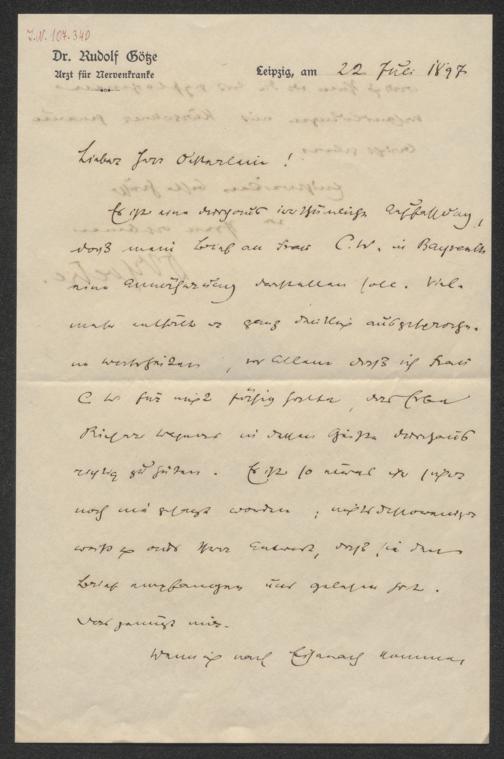 J.N. 107.340
Dr. Rudolf Götze
Arzt für Nervenkranke
Leipzig, am 22 Juli 1897
Lieber Herr Oesterlein!
Es ist eine durchaus irrthümliche Auffassung,
daß mein Brief an Frau C.W. in Bayreuth
eine Annäherung darstellen soll. Viel-
mehr enthält er ganz deutlich ausgesproche-
ne Wahrheiten, vor Allem daß ich Frau
C W für nicht fähig halte, das Erbe
Richard Wagners in dessen Geiste durchaus
richtig zu hüten. Es ist so einmal ihr sicher
noch nie gesagt worden; nichtsdestoweniger
weiß ich ohne Ihre Antwort, daß sie den
Brief empfangen und gelesen hat.
Das genügt mir.
Wenn ich nach Eisenach komme,